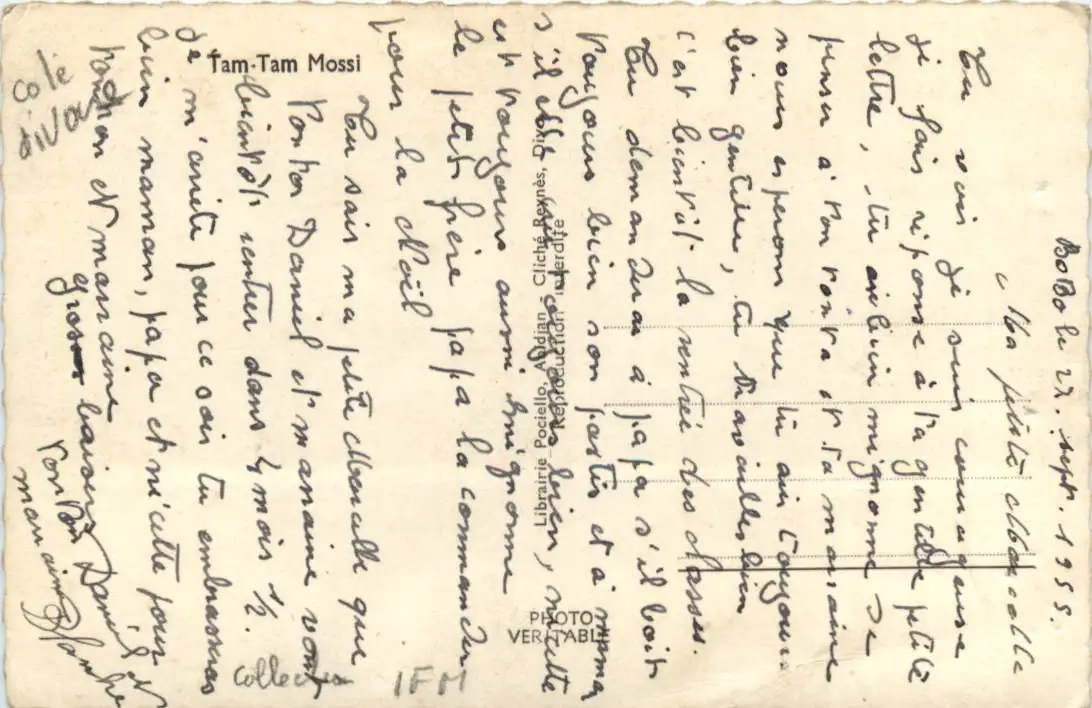 BoBo le 27. sept. 1955.
Ma petite
Tu vois je suis courageuse
je fais réponse à ta gentille petite
lettre, tu es bien mignonne de
penser à ton tonton et ta marraine
nous esperons que tu es toujours
bien gentille, tu travailles bien
c'est bientôt la rentrée des classes.
Tu demanderas à papa s'il boit
toujours bien son pastis et à maman
s'il elle bien, nicette
est toujours aussi mignonne
le petit frère papa la commander
pour la Noël
Tu sais ma petite que
tonton Daniel et marraine vont
bientôt rentrer dans 4 mois 1/2.
Je m'arrête pour ce soir tu embrasses
bien maman, papa et nicette pour
tonton et marraine
gros baisers
tonton Daniel et
marraine Blanche
Tam-Tam Mossi
Librairie Pociello, Abidjan Cliché Reynès,
Reproduction interdite
PHOTO
VERITABLE
Collection IFM
le
8